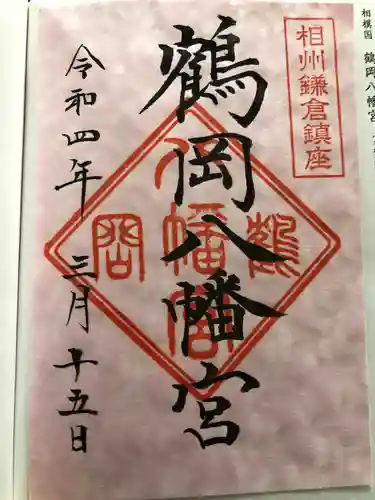 相模国 鶴岡八幡宮
相州鎌倉鎮座
鶴岡八幡宮
鶴
八幡宮
岡
令和四年 三月 十五日